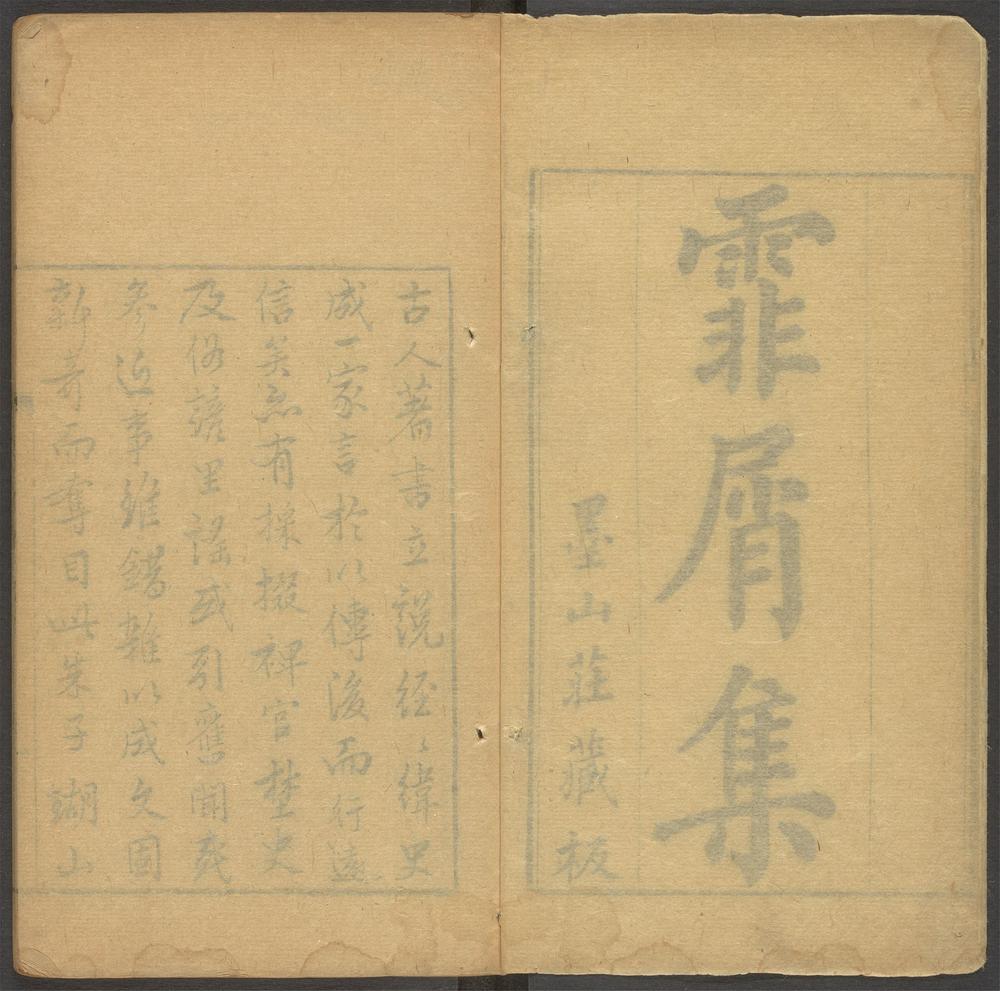 霏屑集
墨山莊藏板
古人著書立說經〻緯史
成一家言於以傳後而行遠
信矣亦有採掇裨官埜史
及俗諺里謠或引舊聞或
參近事雖錯雜以成文固
新奇而奪目此朱子瑚山